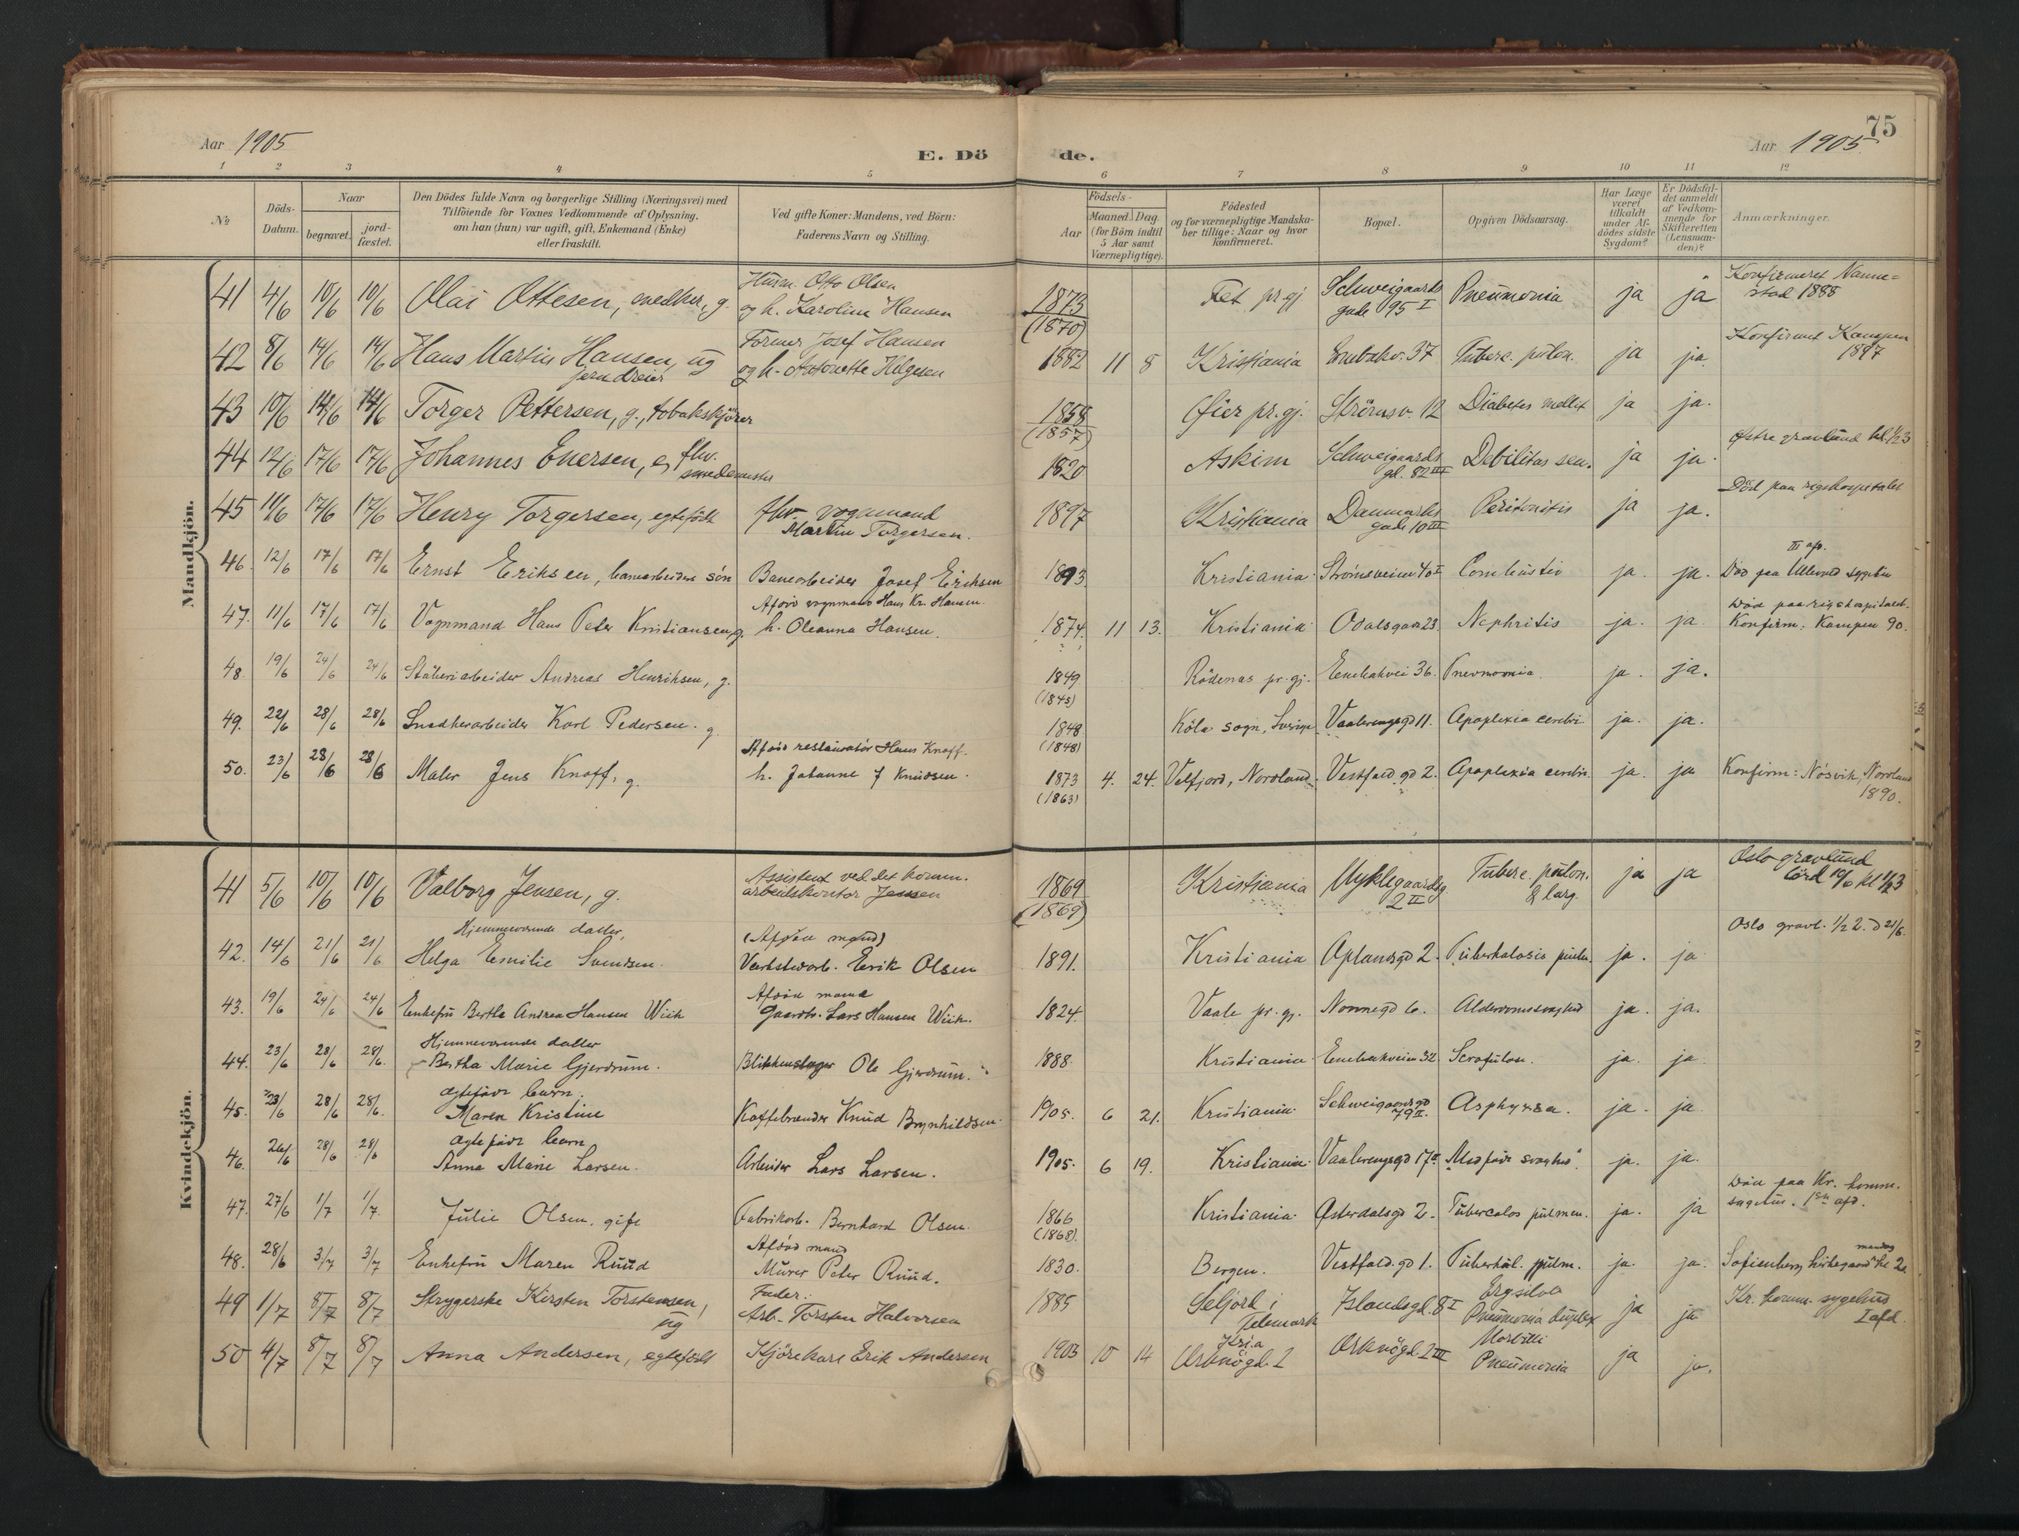 Aar 1905
E. Dö
de.
75
Aar 1905
1 2 3 4 5 6 7 8 9 10 11 12
№
Döds-Datum.
Naar
begravet.
jord-fæstet.
Den Dödes fulde Navn og borgerlige Stilling (Næringsvei) med
Tilföiende for Voxnes Vedkommende af Oplysning,
om han (hun) var ugift, gift, Enkemand (Enke)
eller fraskilt.
Ved gifte Koner: Mandens, ved Börn:
Faderens Navn og Stilling.
Födsels-
Aar
Maaned. Dag.
(for Börn indtil
5 Aar samt
Værnepligtige).
Födested
og for værnepligtige Mandska-
ber tillige: Naar og hvor
konfirmeret.
Bopæl.
Opgiven Dödsaarsag.
Har Læge
været
tilkaldt
under Af-
dödes sidste
Sygdom?
Er Dödsfal-
det anmeldt
af Vedkom-
mende for
Skifteretten
(Lensman-
den)?
Anmærkninger.
Mandkjön.
Husm. Otto Olsen
Konfirmeret Nanne=
41 4/6 10/6 10/6 Olai Ottesen, snedker, g. og h. Karoline Hansen 1873 (1870) Fet pr.gj Schweigaards gade 95 I Pneumonia ja ja stad 1888
Former Josef Hansen
Konfirmert Kampen
42 8/6 14/6 14/6 Hans Martin Hansen, ug jerndreier og h. Antonette Helgesen 1882 11 8 Kristiania Enebakv. 37 Tuberc. pulon. ja ja. 1897
43 10/6 14/6 14/6 Torger Pettersen, g., tobakskjörer 1858 (1857) Öier pr.gj. Strömsv. 12 Diabetes mellit ja ja.
44 12/6 17/6 17/6 Johannes Enersen, e, fhv. smedemester 1820 Askim Schweigaards gd. 82 III Debilitas sen. ja ja. Østre gravlund kl. 1/2 3
45 11/6 17/6 17/6 Henry Torgersen, egtefödt fhv. vognmand Martin Torgersen. 1897 Kristiania Danmarks gade 10 III Peritonitis ja ja. Död paa rigshospitalet
46. 12/6 17/6 17/6 Ernst Eriksen, banearbeiders sön Banearbeider Josef Eriksen 1893. Kristiania Strömsveien 40 I Combustio ja. ja. Död paa Ullevaal sygehus III afd.
Afdöd vognmand Hans Kr. Hansen.
Död paa rigshospitalet.
47. 11/6 17/6 17/6 Vognmand Hans Peter Kristiansen, g. h. Oleanna Hansen. 1874. 11 13. Kristiania Odalsgaa 23. Nephritis ja. ja. Konfirm: Kampen 90.
48. 19/6 24/6 24/6 Støberiarbeider Andreas Henriksen, g. 1849 (1845) Rödenæs pr. gj. Enebakvei 36. Pnevmonia. ja. ja.
49. 22/6 28/6 28/6 Snedkerarbeider Karl Pedersen. g. 1848 (1848) Köla sogn, Sverige Vaalerengsgd 11. Apoplexia cerebri ja. ja.
Afdöd restauratör Hans Knoff.
50. 23/6 28/6 28/6 Maler Jens Knoff, g. h. Johanne f Knudsen. 1873 (1863) 4. 24. Velfjord, Nordland. Vestfold gd 2. Apoplexia cerebri ja. ja Konfirm: Nösvik, Nordland 1890.
Kvindekjön.
Assistent ved det komm.
Oslo gravlund
41 5/6 10/6 10/6 Valborg Jensen, g. arbeidskontor Jensen 1869 (1869) Kristiania Myklegaardsg. 2 II Tuberc. pulon. & larg. ja ja lörd 10/6 kl 1/2 3
Hjemmeværende datter,
(Afdöd mand)
Oslo gravl. 1/2 2. d 21/6.
42. 14/6 21/6 21/6 Helga Emilie Svendsen. Verkstedarb. Erik Olsen 1891. Kristiania Uplandsgd 2. Tuberkulosis pulm. ja. ja
Afdöd mand
43. 19/6 24/6 24/6 Enkefru Berthe Andrea Hansen Wiik Gaardb. Lars Hansen Wiik. 1824. Vaale pr. gj. Nonnegd 6. Alderdomssvaghed ja. ja.
Hjemmeværende datter
44. 23/6 28/6 28/6. Bertha Marie Gjerdrum. Blikkenslager Ole Gjerdrum. 1888. Kristiania Enebakveien 32. Scrofulose. ja. ja.
ægtefödt barn.
45. 23/6 28/6 28/6. Maren Kristine Kaffebrænder Knud Brynhildsen. 1905. 6 21. Kristiania. Schweigaardsgd 79 II. Asphyxia. ja. ja.
ægtefödt barn
46. 26/6 28/6 28/6 Anna Marie Larsen. Arbeider Lars Larsen. 1905. 6 19. Kristiania. Vaalerengsgd 17 II "Medfödt svaghed". ja. ja.
Död paa Kr. komm.
47. 27/6 1/7 1/7. Julie Olsen, gift Fabrikarb. Bernhard Olsen. 1866 (1868). Kristiania. Østerdalsgd 2. Tubercolos pulmon. ja. ja sygehus. 1ste afd.
Afdöd mand
48. 28/6 3/7 3/7 Enkefru Maren Ruud Murer Peter Ruud. 1830. Bergen. Vestfold gd 1. Tuberkul. pulm. ja. ja. Sofienberg kirkegaard mandag kl 2.
Fader:
49 1/7 8/7 8/7 Strygerske Kirsten Torstensen, ug Arb. Torsten Halvorsen 1885 Seljord i Telemark Islandsgd. 8 I Pneumonia duplex ja ja Kr. komm. sygehus I afd.
50 4/7 8/7 8/7 Anna Andersen, egtefödt Kjörekarl Erik Andersen 1903 10 14 Kr.ia Orknögd. 2 Orknögd. 2 III Morbilli Pneumonia ja ja.